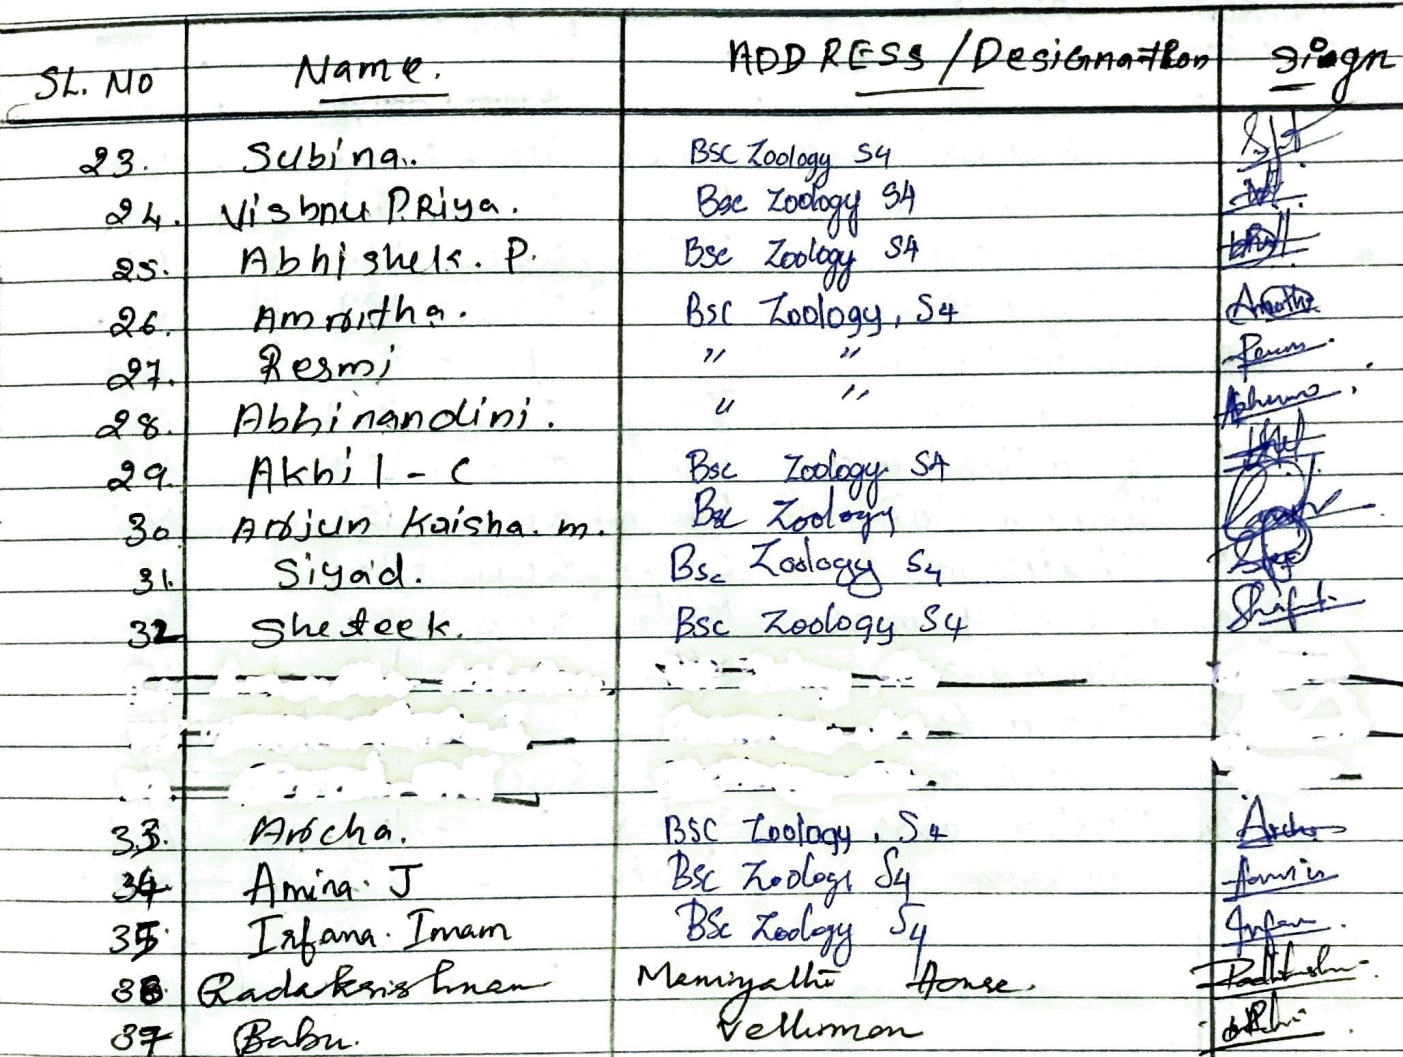 SL. NO Name. ADDRESS / Designation Siagn
23. Subina.. BSC Zoology S4
24. Vishnu PRiya. Bsc Zoology S4
25. Abhishek. P. Bsc Zoology S4
26. Amritha. BSC Zoology, S4
27. Resmi " "
28. Abhinandini. " "
29. Akhil - C Bsc Zoology S4
30 Arjun Kaisha. m. Bsc Zoology
31. Siyad. Bsc Zoology S4
32 BSC Zoology S4
33. Archa. BSC Zoology, S4
34 Amina. J BSC Zoology S4
35 Irfana. Imam BSc Zoology S4
36 Radakrishnan House.
37 Babu. Vellimon